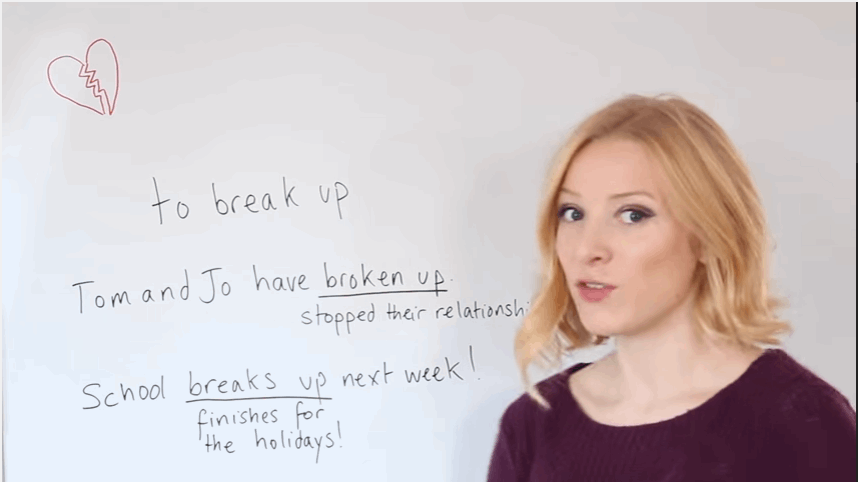 to break up
Tom and Jo have broken up.
stopped their relationshi
School breaks up next week!
finishes for
the holidays!